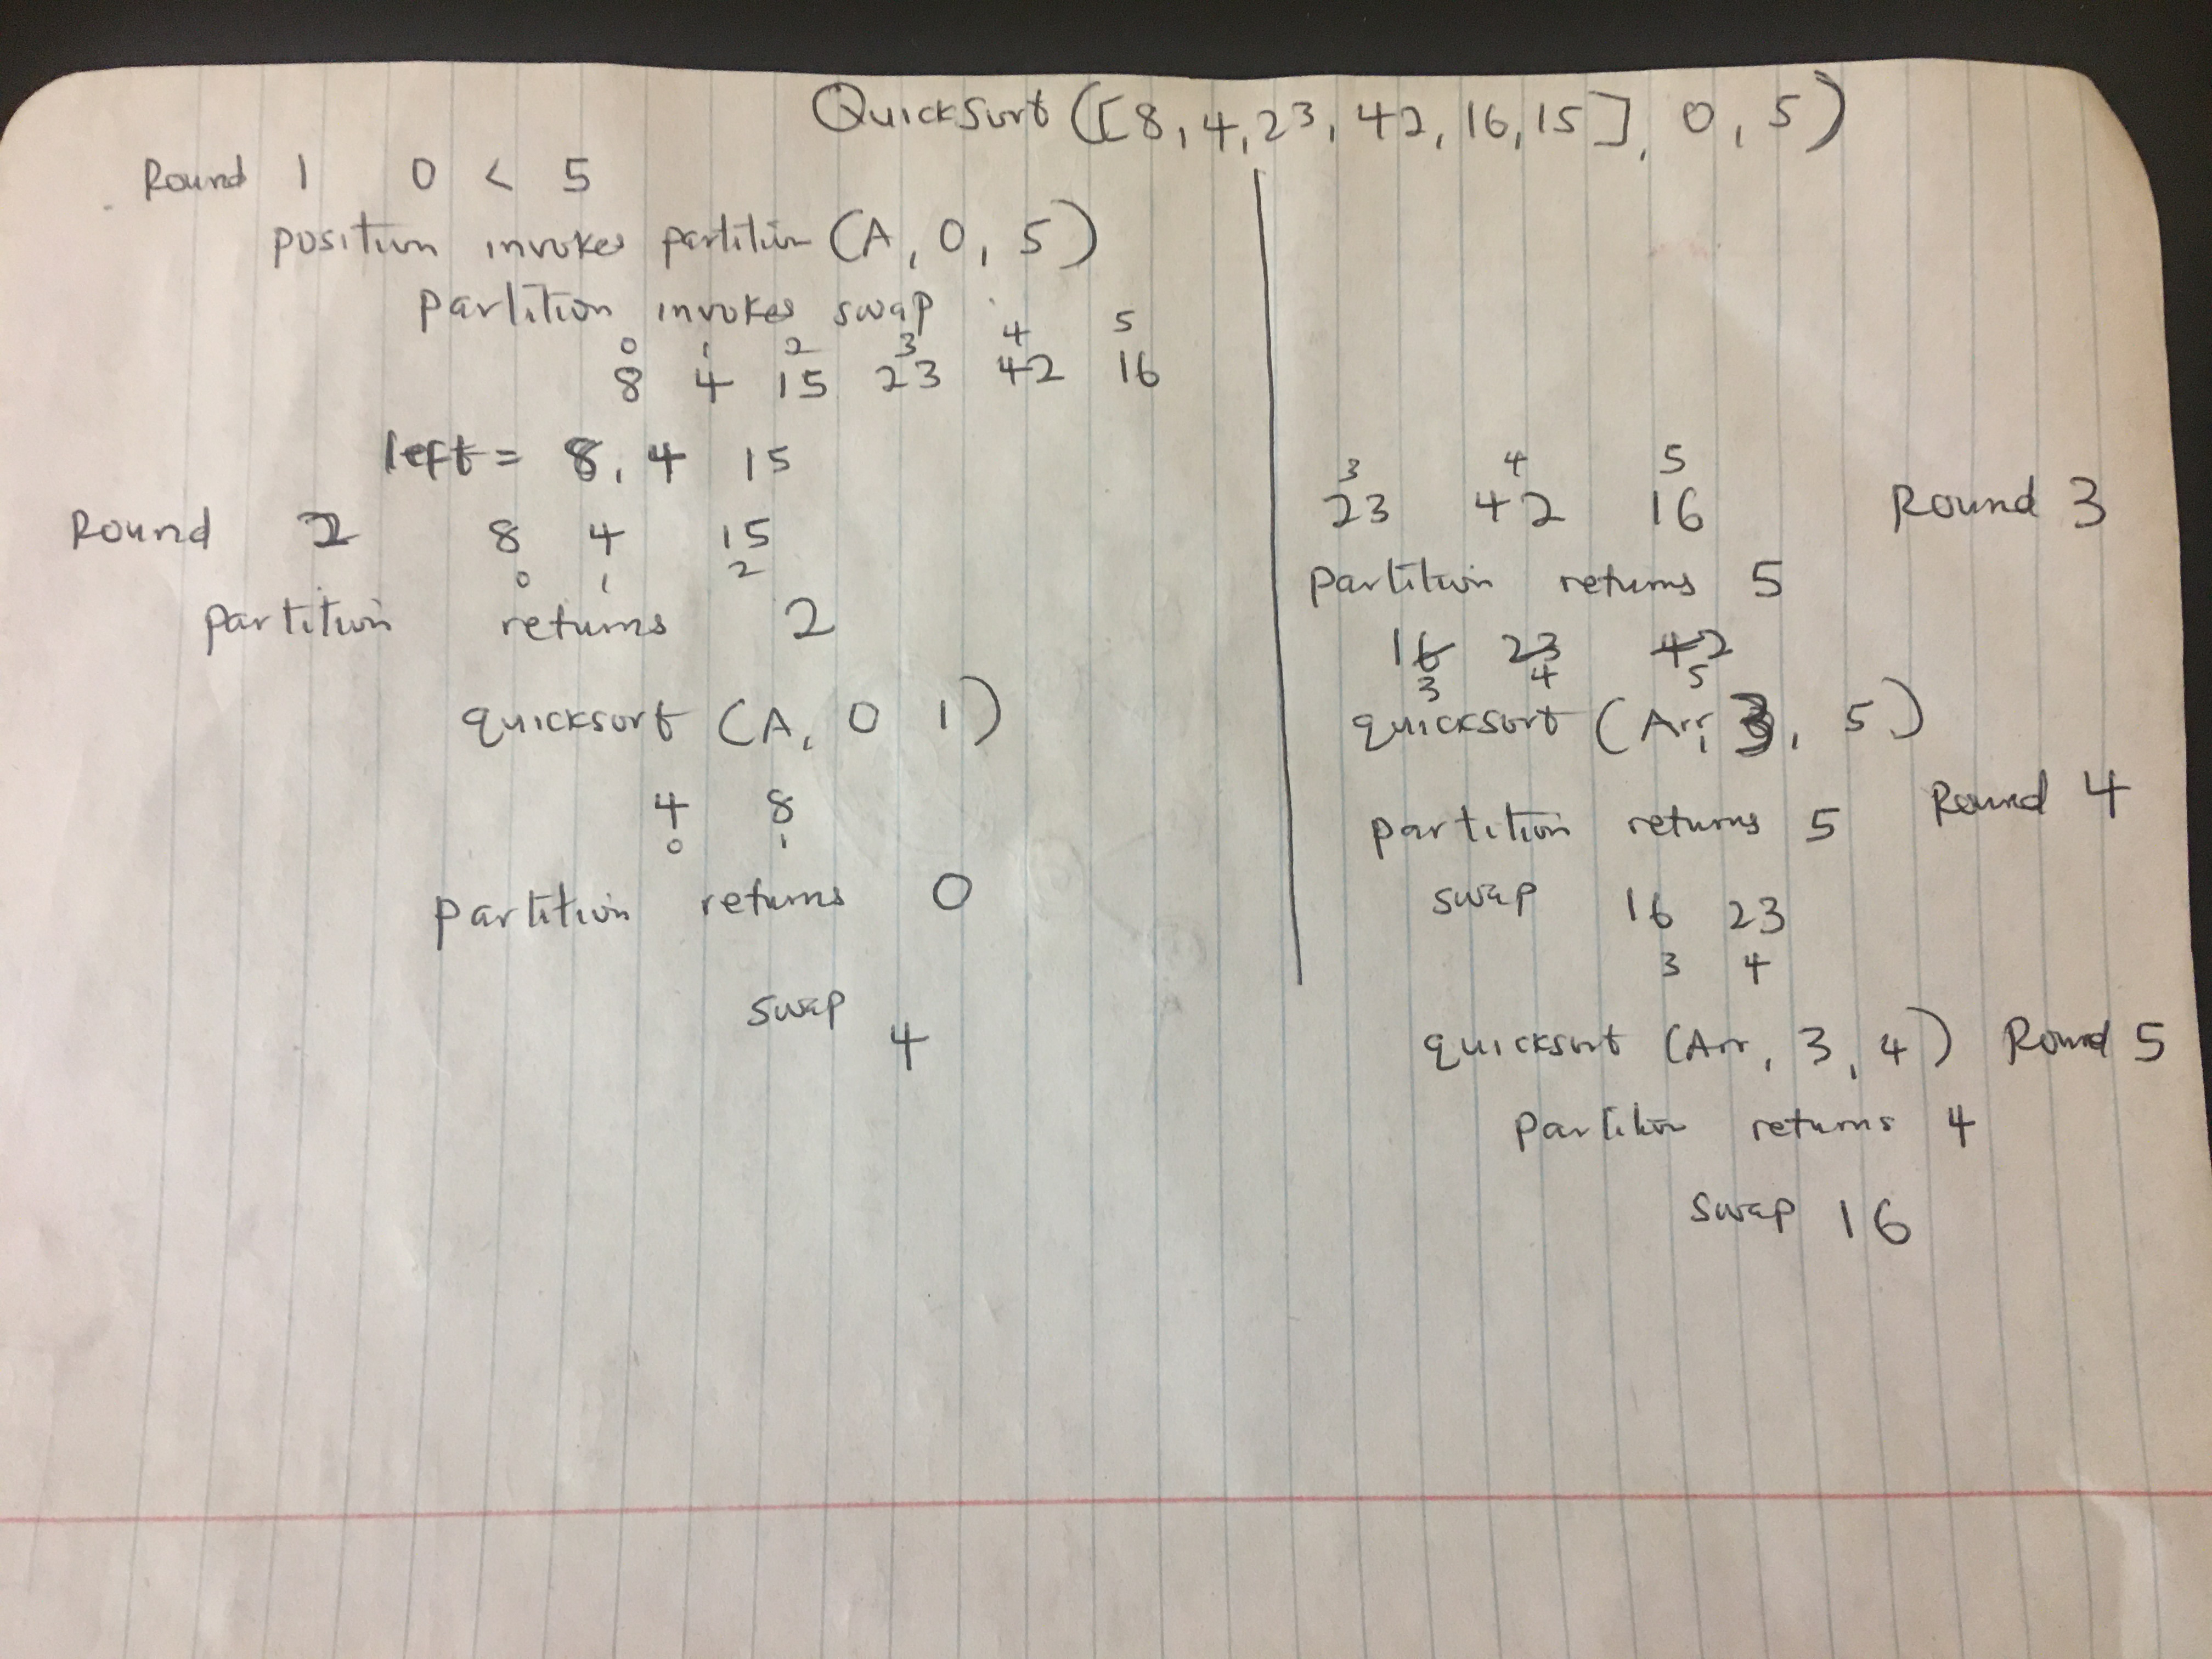 QuickSort ([8,4,23,42,16,15], 0, 5)
Round 1 0 < 5
position invokes partition (A, 0, 5)
partition invokes swap
0 1 2 3 4 5
8 4 15 23 42 16
left = 8, 4 15
Round 2 8 4 15
0 1 2
partition returns 2
quicksort (A, 0 1)
4 8
0 1
partition returns 0
swap
4
3 4 5
23 42 16 Round 3
partition returns 5
16 23 42
3 4 5
quicksort (Arr, 3, 5)
partition returns 5 Round 4
swap 16 23
3 4
quicksort (Arr, 3, 4) Round 5
partition returns 4
swap 16